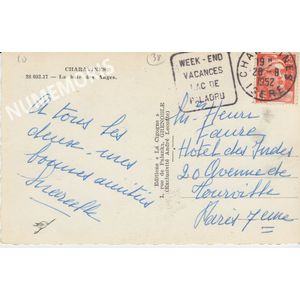 10
38
CHARAVINES
38.082.17 - La baie des Anges.
NUMEMORIS
WEEK-END
VACANCES
LAC DE
PALADRU
CHARAVINES
19 H
28 - 8
1952
ISERE
A tous les
deux mes
bonnes amitiés
Marcelle
Editions « La Cigogne »
1, rue de Palanka, GRENOBLE
Henri
Faure
Hôtel des Indes
20 Avenue de
Tourville
Paris 7eme